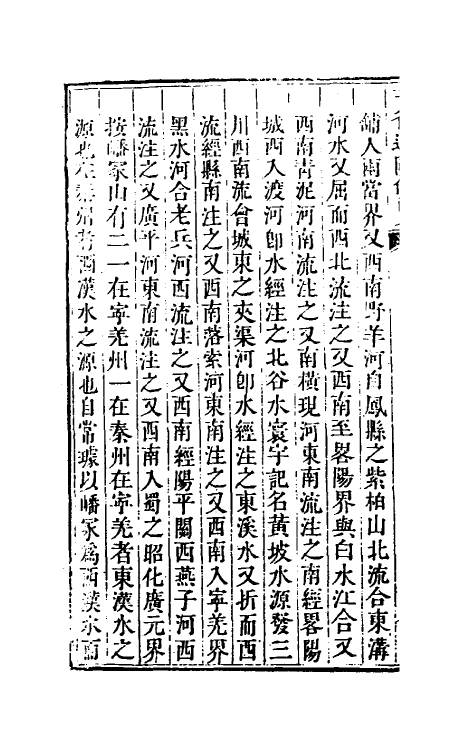 鋪入兩當界又西南野羊河自鳳縣之紫柏山北流合東溝
河水又屈而西北流注之又西南至畧陽界與白水江合又
西南青泥河南流注之又南橫現河東南流注之南經畧陽
城西入渡河卽水經注之北谷水寰宇記名黃坡水源發三
川西南流會城東之夾渠河卽水經注之東溪水又折而西
流經縣南注之又西南落索河東南注之又西南入寧羌界
黑水河合老兵河西流注之又西南經陽平關西燕子河西
流注之又廣平河東南流注之又西南入蜀之昭化廣元界
按嶓冢山有二一在寧羌州一在秦州在寧羌者東漢水之
源也在秦州者西漢水之源也自常璩以嶓冢爲西漢水而